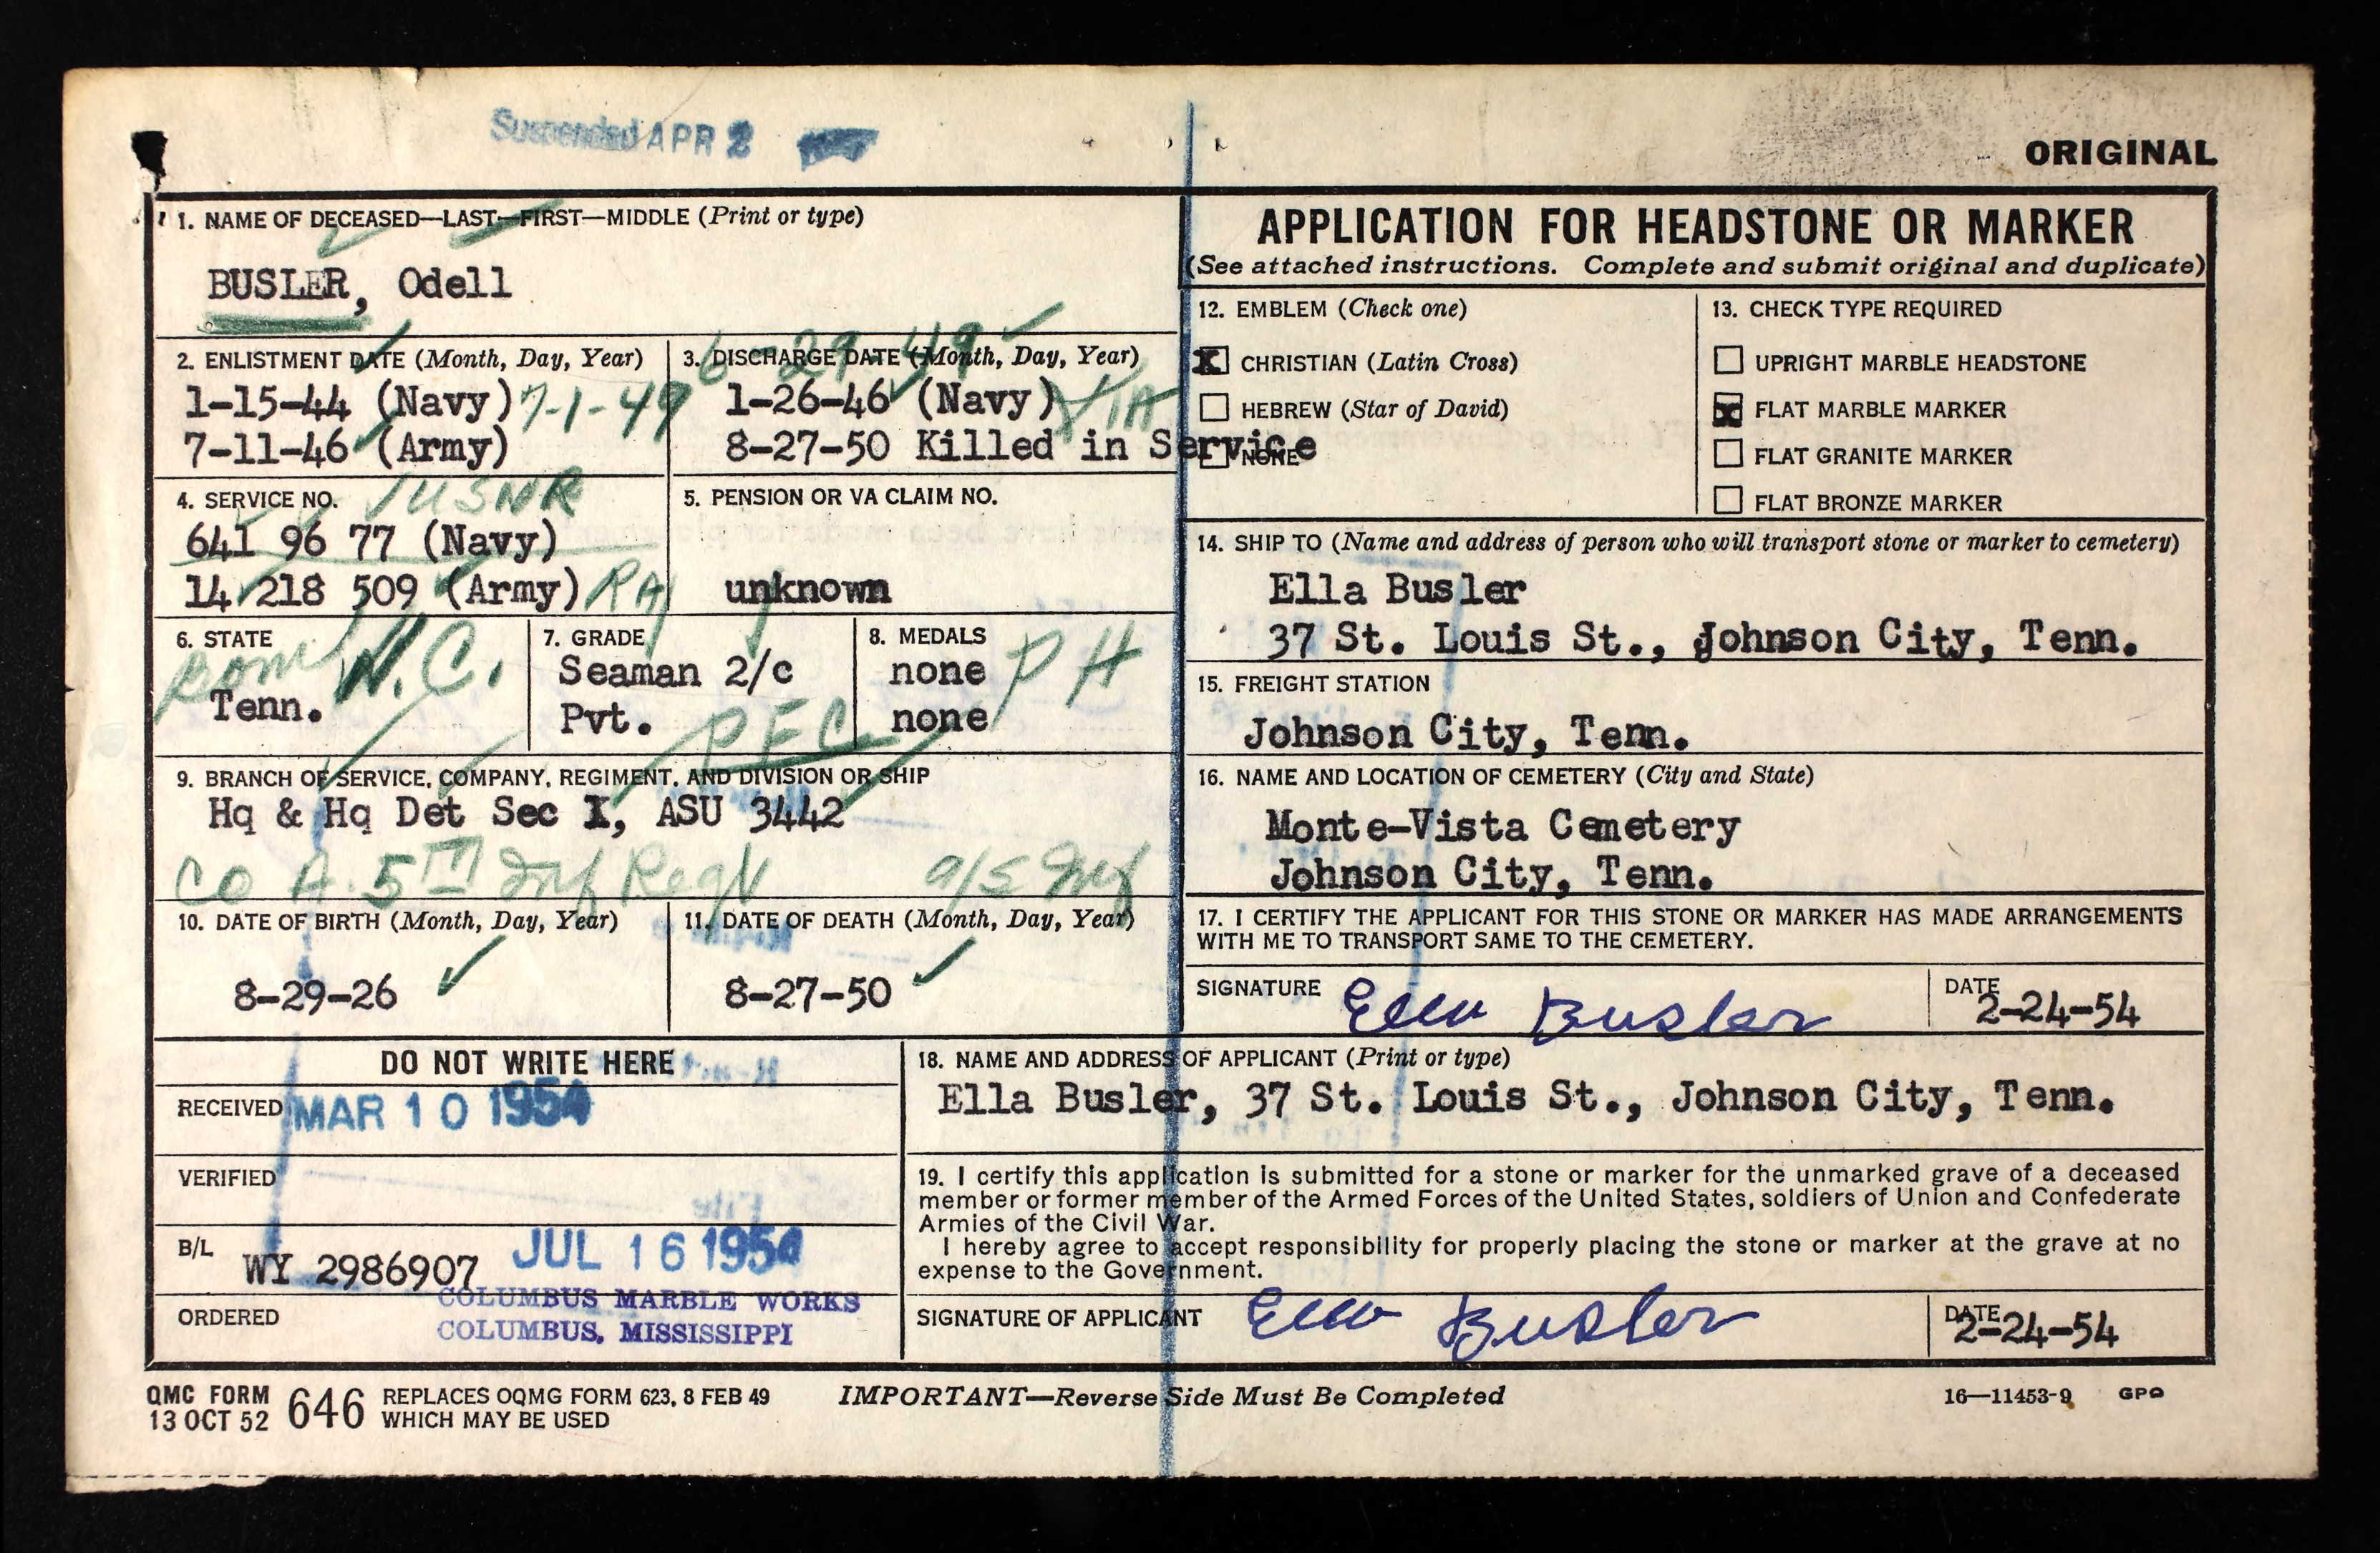 Suspended APR 2
ORIGINAL
1. NAME OF DECEASED—LAST—FIRST—MIDDLE (Print or type)
BUSLER, Odell
2. ENLISTMENT DATE (Month, Day, Year)
1-15-44 (Navy) 7-1-49
7-11-46 (Army)
3. DISCHARGE DATE (Month, Day, Year)
6-29-49
1-26-46 (Navy)
8-27-50 Killed in Service
4. SERVICE NO.
USNR
641 96 77 (Navy)
14 218 509 (Army) RA
5. PENSION OR VA CLAIM NO.
unknown
6. STATE
N.C.
Tenn.
7. GRADE
Seaman 2/c
Pvt. PFC
8. MEDALS
none PH
none
9. BRANCH OF SERVICE, COMPANY, REGIMENT, AND DIVISION OR SHIP
Hq & Hq Det Sec I, ASU 3442
Co A. 5TH Inf Regt
10. DATE OF BIRTH (Month, Day, Year)
8-29-26
11. DATE OF DEATH (Month, Day, Year)
8-27-50
APPLICATION FOR HEADSTONE OR MARKER
(See attached instructions. Complete and submit original and duplicate)
12. EMBLEM (Check one)
X CHRISTIAN (Latin Cross)
HEBREW (Star of David)
NONE
13. CHECK TYPE REQUIRED
UPRIGHT MARBLE HEADSTONE
X FLAT MARBLE MARKER
FLAT GRANITE MARKER
FLAT BRONZE MARKER
14. SHIP TO (Name and address of person who will transport stone or marker to cemetery)
Ella Busler
37 St. Louis St., Johnson City, Tenn.
15. FREIGHT STATION
Johnson City, Tenn.
16. NAME AND LOCATION OF CEMETERY (City and State)
Monte-Vista Cemetery
Johnson City, Tenn.
17. I CERTIFY THE APPLICANT FOR THIS STONE OR MARKER HAS MADE ARRANGEMENTS
WITH ME TO TRANSPORT SAME TO THE CEMETERY.
SIGNATURE Ella Busler
DATE 2-24-54
DO NOT WRITE HERE
RECEIVED MAR 10 1954
VERIFIED
B/L WY 2986907 JUL 16 1954
ORDERED
COLUMBUS MARBLE WORKS
COLUMBUS, MISSISSIPPI
18. NAME AND ADDRESS OF APPLICANT (Print or type)
Ella Busler, 37 St. Louis St., Johnson City, Tenn.
19. I certify this application is submitted for a stone or marker for the unmarked grave of a deceased
member or former member of the Armed Forces of the United States, soldiers of Union and Confederate
Armies of the Civil War.
I hereby agree to accept responsibility for properly placing the stone or marker at the grave at no
expense to the Government.
SIGNATURE OF APPLICANT Ella Busler
DATE 2-24-54
QMC FORM
13 OCT 52 646 REPLACES OQMG FORM 623, 8 FEB 49
WHICH MAY BE USED
IMPORTANT—Reverse Side Must Be Completed
16—11453-9 GPO